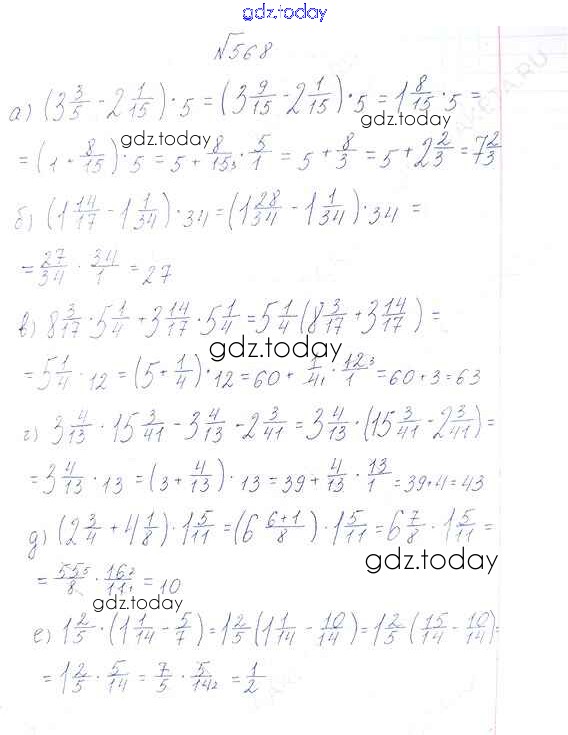 gdz.today
№568
а) (3 3/5 - 2 1/15) · 5 = (3 9/15 - 2 1/15) · 5 = 1 8/15 · 5 =
gdz.today
= (1 + 8/15) · 5 = 5 + 8/15₃ · 5/1 = 5 + 8/3 = 5 + 2 2/3 = 7 2/3
б) (1 14/17 - 1 1/34) · 34 = (1 28/34 - 1 1/34) · 34 =
= 27/34 · 34/1 = 27
в) 8 3/17 · 5 1/4 + 3 14/17 · 5 1/4 = 5 1/4 (8 3/17 + 3 14/17) =
gdz.today
= 5 1/4 · 12 = (5 + 1/4) · 12 = 60 + 1/4₁ · 12³/1 = 60 + 3 = 63
г) 3 4/13 · 15 3/41 - 3 4/13 - 2 3/41 = 3 4/13 · (15 3/41 - 2 3/41) =
= 3 4/13 · 13 = (3 + 4/13) · 13 = 39 + 4/13 · 13/1 = 39 + 4 = 43
д) (2 3/4 + 4 1/8) · 1 5/11 = (6 6+1/8) · 1 5/11 = 6 7/8 · 1 5/11 =
gdz.today
= 55⁵/8 · 16²/11₁ = 10
gdz.today
е) 1 2/5 · (1 1/14 - 5/7) = 1 2/5 (1 1/14 - 10/14) = 1 2/5 (15/14 - 10/14) =
= 1 2/5 · 5/14 = 7/5 · 5/14₂ = 1/2